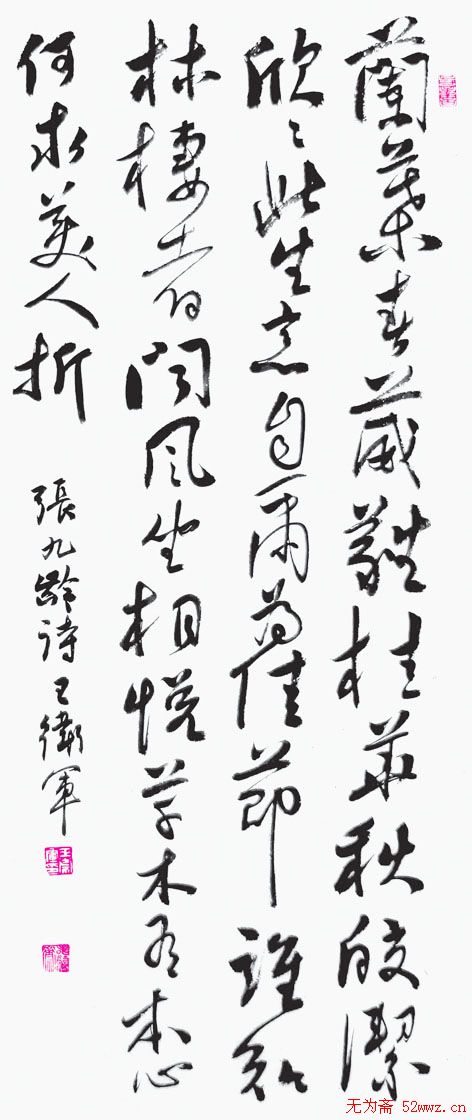 蘭葉春葳蕤桂華秋皎潔
欣〻此生意自爾為佳節誰知
林棲者聞風坐相悅草木有本心
何求美人折
張九齡詩王衛軍
无为斋 52wwz.cn